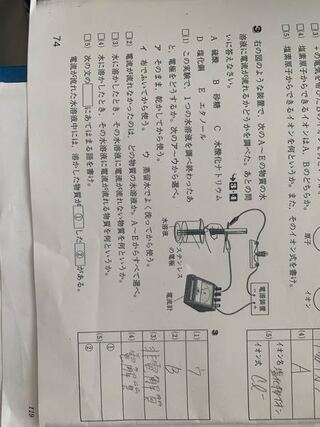 □(3) +の電気を帯びた
□(4) 塩素原子からできるイオンは、A、Bのどちらか。
□(5) 塩素原子からできるイオンを何というか。また、そのイオン式を書け。
原子
イオン
(4) A
(5) イオン名 塩化物イオン
イオン式 Cl-
3 右の図のような装置で、次のA～Eの物質の水
溶液に電流が流れるかどうかを調べた。あとの問
いに答えなさい。 3・4
A 硫酸 B 砂糖 C 水酸化ナトリウム
D 塩化銅 E エタノール
□(1) この実験で、1つの水溶液を調べ終わったあ
と、電極をどうするか。次のア～ウから選べ。
ア そのまま、乾かしてから使う。
イ 布でふいてから使う。 ウ 蒸留水でよく洗ってから使う。
□(2) 電流が流れなかったのは、どの物質の水溶液か。A～Eからすべて選べ。
□(3) 水に溶かしたとき、その水溶液に電流が流れない物質を何というか。
□(4) 水に溶かしたとき、その水溶液に電流が流れる物質を何というか。
□(5) 次の文の□にあてはまる語を書け。
電流が流れた水溶液中には、溶かした物質が ① した ② がある。
電源装置
水溶液
ステンレス
の電極
電流計
3
(1) ウ
(2) B
(3) 非電解質
(4) 電解質
(5) ①
②
74
119